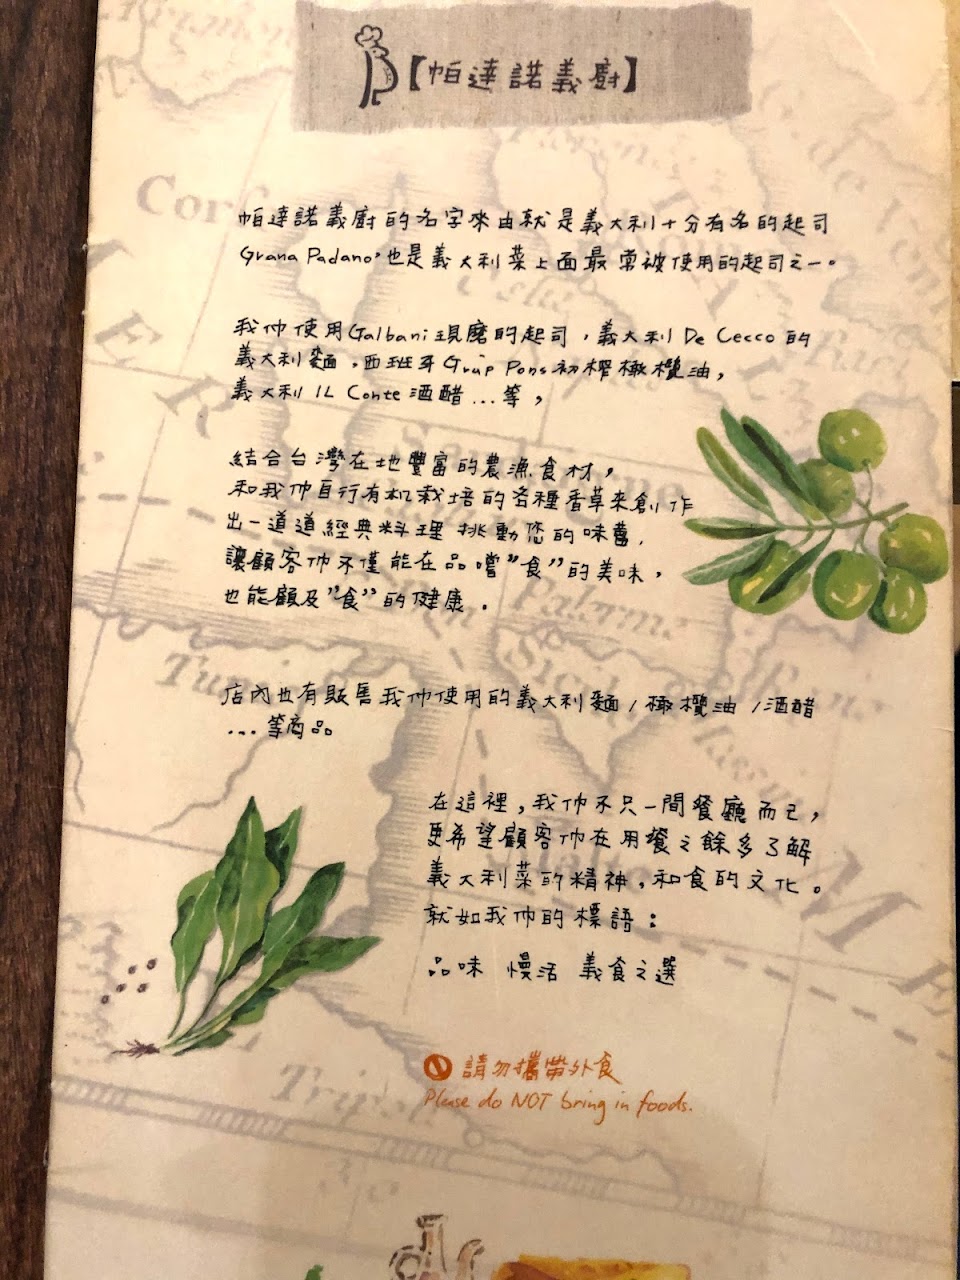 【帕達諾義廚】
帕達諾義廚的名字來由就是義大利十分有名的起司
Grana Padano,也是義大利菜上面最常被使用的起司之一。
我们使用Galbani現磨的起司,義大利 De Cecco 的
義大利麵,西班牙Grup Pons初榨橄欖油,
義大利 IL Conte 酒醋...等,
結合台灣在地豐富的農漁食材,
和我们自行有机栽培的各種香草來創作
出一道道經典料理 挑動您的味蕾,
讓顧客们不僅能在品嚐"食"的美味,
也能顧及"食"的健康。
店內也有販售我们使用的義大利麵/橄欖油/酒醋
...等商品
在這裡,我们不只一間餐廳而已,
更希望顧客们在用餐之餘多了解
義大利菜的精神,和食的文化。
就如我们的標語:
品味 慢活 義食之選
請勿攜帶外食
Please do NOT bring in foods.